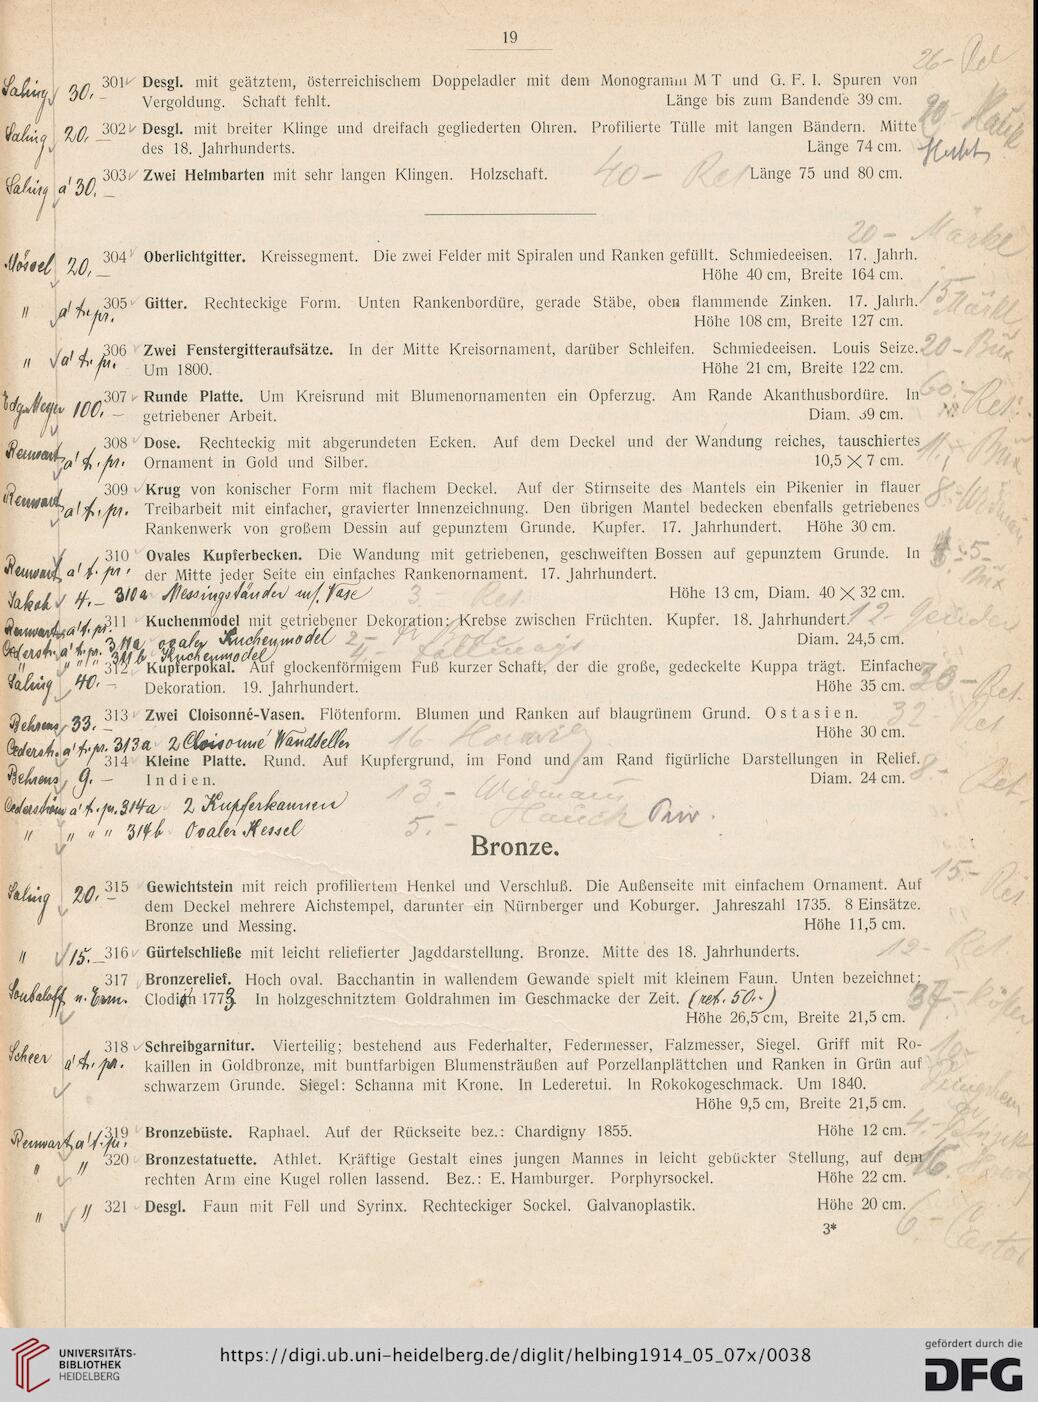 19
301 Desgl. mit geätztem, österreichischem Doppeladler mit dem Monogramm M T und G. F. I. Spuren von
Vergoldung. Schaft fehlt. Länge bis zum Bandende 39 cm.
Saling 30.–
26– Ret
302 Desgl. mit breiter Klinge und dreifach gegliederten Ohren. Profilierte Tülle mit langen Bändern. Mitte
des 18. Jahrhunderts. Länge 74 cm.
Saling 20.–
303 Zwei Helmbarten mit sehr langen Klingen. Holzschaft. Länge 75 und 80 cm.
Saling a' 30.–
40– Ret
304 Oberlichtgitter. Kreissegment. Die zwei Felder mit Spiralen und Ranken gefüllt. Schmiedeeisen. 17. Jahrh.
Höhe 40 cm, Breite 164 cm.
Mössel 20.–
20– Märkl
305 Gitter. Rechteckige Form. Unten Rankenbordüre, gerade Stäbe, oben flammende Zinken. 17. Jahrh.
Höhe 108 cm, Breite 127 cm.
" a' tr. pr.
15 Märkl
306 Zwei Fenstergitteraufsätze. In der Mitte Kreisornament, darüber Schleifen. Schmiedeeisen. Louis Seize.
Um 1800. Höhe 21 cm, Breite 122 cm.
" a' tr. pr.
20–
307 Runde Platte. Um Kreisrund mit Blumenornamenten ein Opferzug. Am Rande Akanthusbordüre. In
getriebener Arbeit. Diam. 39 cm.
100.–
60.– Ret.
308 Dose. Rechteckig mit abgerundeten Ecken. Auf dem Deckel und der Wandung reiches, tauschiertes
Ornament in Gold und Silber. 10,5 ✕ 7 cm.
a' tr. pr.
309 Krug von konischer Form mit flachem Deckel. Auf der Stirnseite des Mantels ein Pikenier in flauer
Treibarbeit mit einfacher, gravierter Innenzeichnung. Den übrigen Mantel bedecken ebenfalls getriebenes
Rankenwerk von großem Dessin auf gepunztem Grunde. Kupfer. 17. Jahrhundert. Höhe 30 cm.
a' tr. pr.
310 Ovales Kupferbecken. Die Wandung mit getriebenen, geschweiften Bossen auf gepunztem Grunde. In
der Mitte jeder Seite ein einfaches Rankenornament. 17. Jahrhundert.
Höhe 13 cm, Diam. 40 ✕ 32 cm.
a' tr. pr.
Jakob 4.– 310a Messingständer m/. Vase 3. Ret.
311 Kuchenmodel mit getriebener Dekoration: Krebse zwischen Früchten. Kupfer. 18. Jahrhundert.
Diam. 24,5 cm.
311a ovaler Kuchenmodel
311b Kuchenmodel
312 Kupferpokal. Auf glockenförmigem Fuß kurzer Schaft, der die große, gedeckelte Kuppa trägt. Einfache
Dekoration. 19. Jahrhundert. Höhe 35 cm.
Saling 40.–
30– Ret.
313 Zwei Cloisonné-Vasen. Flötenform. Blumen und Ranken auf blaugrünem Grund. Ostasien.
Höhe 30 cm.
Behrens 33.–
32– Ret
a' tr. pr. 313a 2 Cloisonné Wandteller
314 Kleine Platte. Rund. Auf Kupfergrund, im Fond und am Rand figürliche Darstellungen in Relief.
Indien. Diam. 24 cm.
Behrens 9.–
8.– Ret.
Cederström a' tr. pr. 314a 2 Kupferkannen 13.– Widmann
" " " " 314b Ovaler Kessel 5.– Hauck
Bronze.
315 Gewichtstein mit reich profiliertem Henkel und Verschluß. Die Außenseite mit einfachem Ornament. Auf
dem Deckel mehrere Aichstempel, darunter ein Nürnberger und Koburger. Jahreszahl 1735. 8 Einsätze.
Bronze und Messing. Höhe 11,5 cm.
Saling 20.–
15.– Ret.
316 Gürtelschließe mit leicht reliefierter Jagddarstellung. Bronze. Mitte des 18. Jahrhunderts.
" 15.–
12– Ret.
317 Bronzerelief. Hoch oval. Bacchantin in wallendem Gewande spielt mit kleinem Faun. Unten bezeichnet:
Clodion 1773. In holzgeschnitztem Goldrahmen im Geschmacke der Zeit. (ret. 50.-)
Höhe 26,5 cm, Breite 21,5 cm.
318 Schreibgarnitur. Vierteilig; bestehend aus Federhalter, Federmesser, Falzmesser, Siegel. Griff mit Ro-
kaillen in Goldbronze, mit buntfarbigen Blumensträußen auf Porzellanplättchen und Ranken in Grün auf
schwarzem Grunde. Siegel: Schanna mit Krone. In Lederetui. In Rokokogeschmack. Um 1840.
Höhe 9,5 cm, Breite 21,5 cm.
Scheer a' tr. pr.
319 Bronzebüste. Raphael. Auf der Rückseite bez.: Chardigny 1855. Höhe 12 cm.
a' tr. pr.
320 Bronzestatuette. Athlet. Kräftige Gestalt eines jungen Mannes in leicht gebückter Stellung, auf dem
rechten Arm eine Kugel rollen lassend. Bez.: E. Hamburger. Porphyrsockel. Höhe 22 cm.
" "
321 Desgl. Faun mit Fell und Syrinx. Rechteckiger Sockel. Galvanoplastik. Höhe 20 cm.
" "
3*
UNIVERSITÄTS-
BIBLIOTHEK
HEIDELBERG
https://digi.ub.uni-heidelberg.de/diglit/helbing1914_05_07x/0038
gefördert durch die
DFG